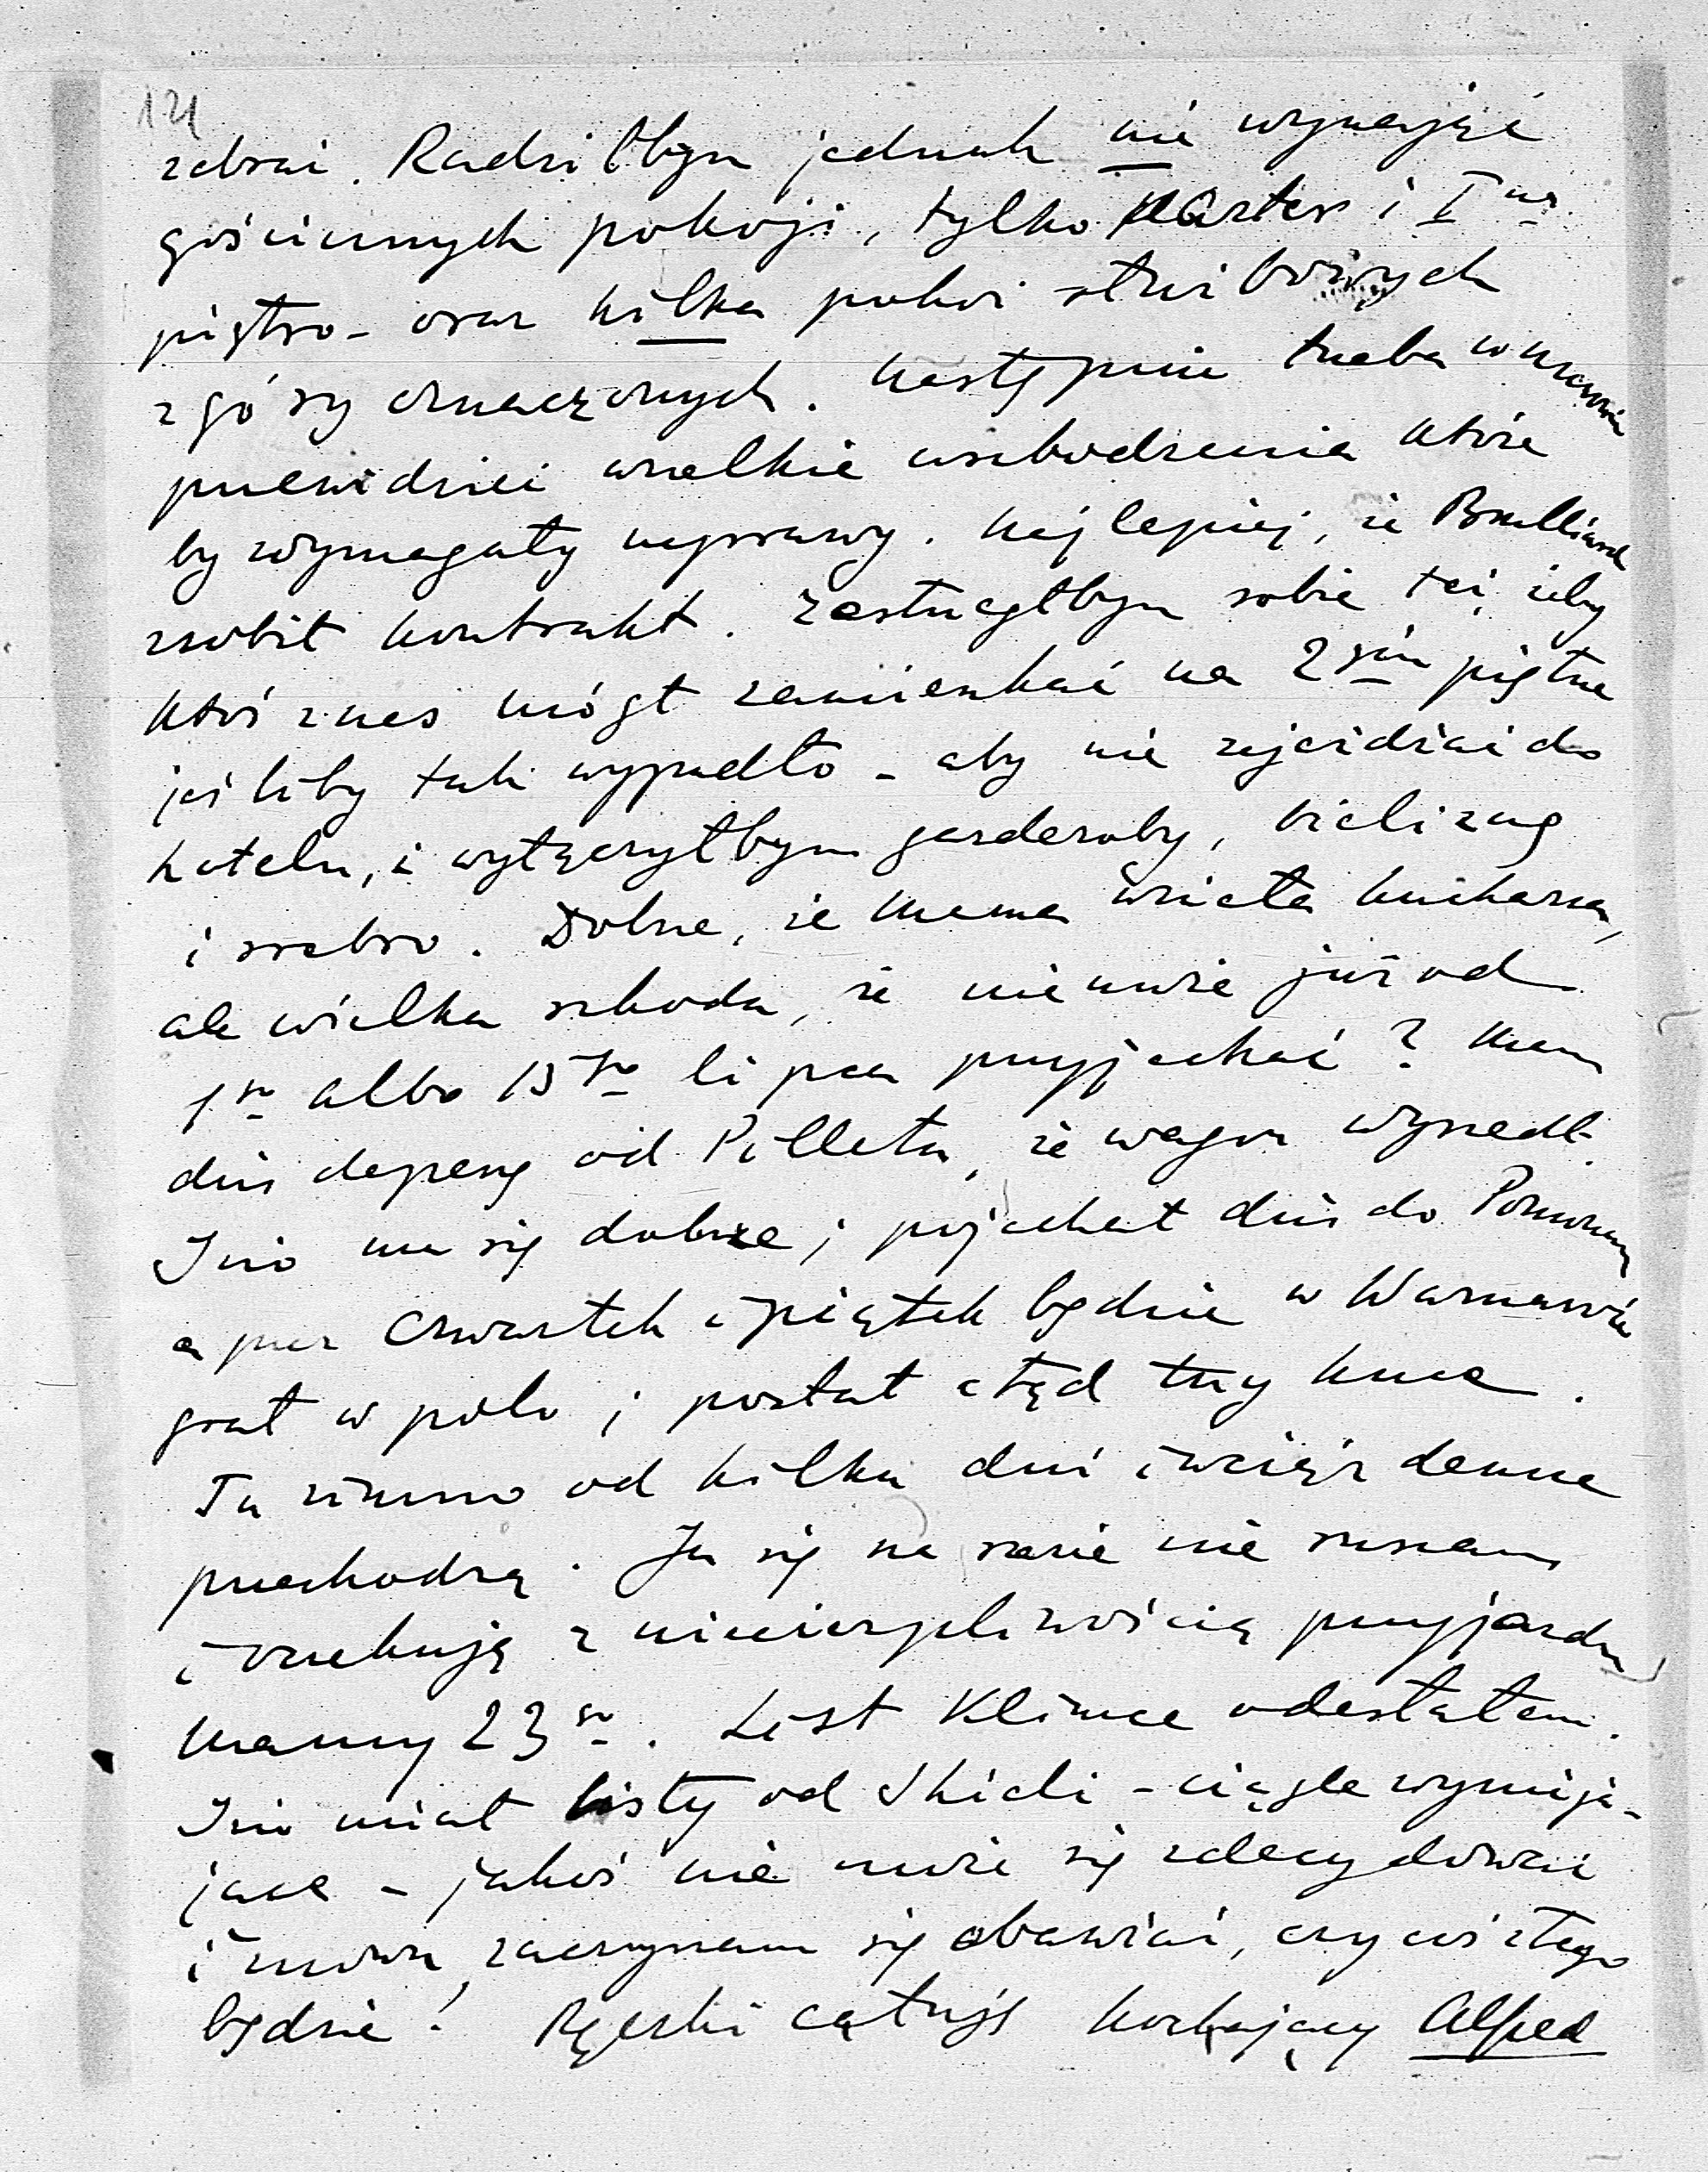 121
zebrać. Radziłbym jednak nie wynająć
gościnnych pokoji, tylko parter i I wsz.
piętro - oraz kilka pokoi służbowych
z góry oznaczonych. Następnie trzeba w umowie
przewidzieć wszelkie uszkodzenia które
by wymagały naprawy. Najlepiej, że Brulliard
zrobił kontrakt. Zastrzegłbym sobie też, żeby
ktoś z nas mógł zamieszkać na 2gim piętrze
jeśliby tak wypadło - aby nie zajeżdżać do
hotelu, i wyłączyłbym garderoby, bieliznę
i srebro. Dobrze, że Mama wzięła kucharza,
ale wielka szkoda, że nie może już od
1go albo 15go lipca przyjechać? Mam
dziś depeszę od Pilleta, że wagon wyszedł.
Inio ma się dobrze; pojechał dziś do Pomorzan
a przez czwartek i piątek będzie w Warszawie
grał w polo; posłał stąd trzy konie.
Tu zimno od kilku dni i wciąż deszcze
przechodzą. Ja się na razie nie ruszam
i oczekuję z niecierpliwością przyjazdu
Mamy 23go. List Klimce odesłałem.
Inio miał listy od Skidi - ciągle wymija-
jące - jakoś nie może się zdecydować
i znowu zaczynam się obawiać, czy coś z tego
będzie! Rączki całuję kochający Alfred